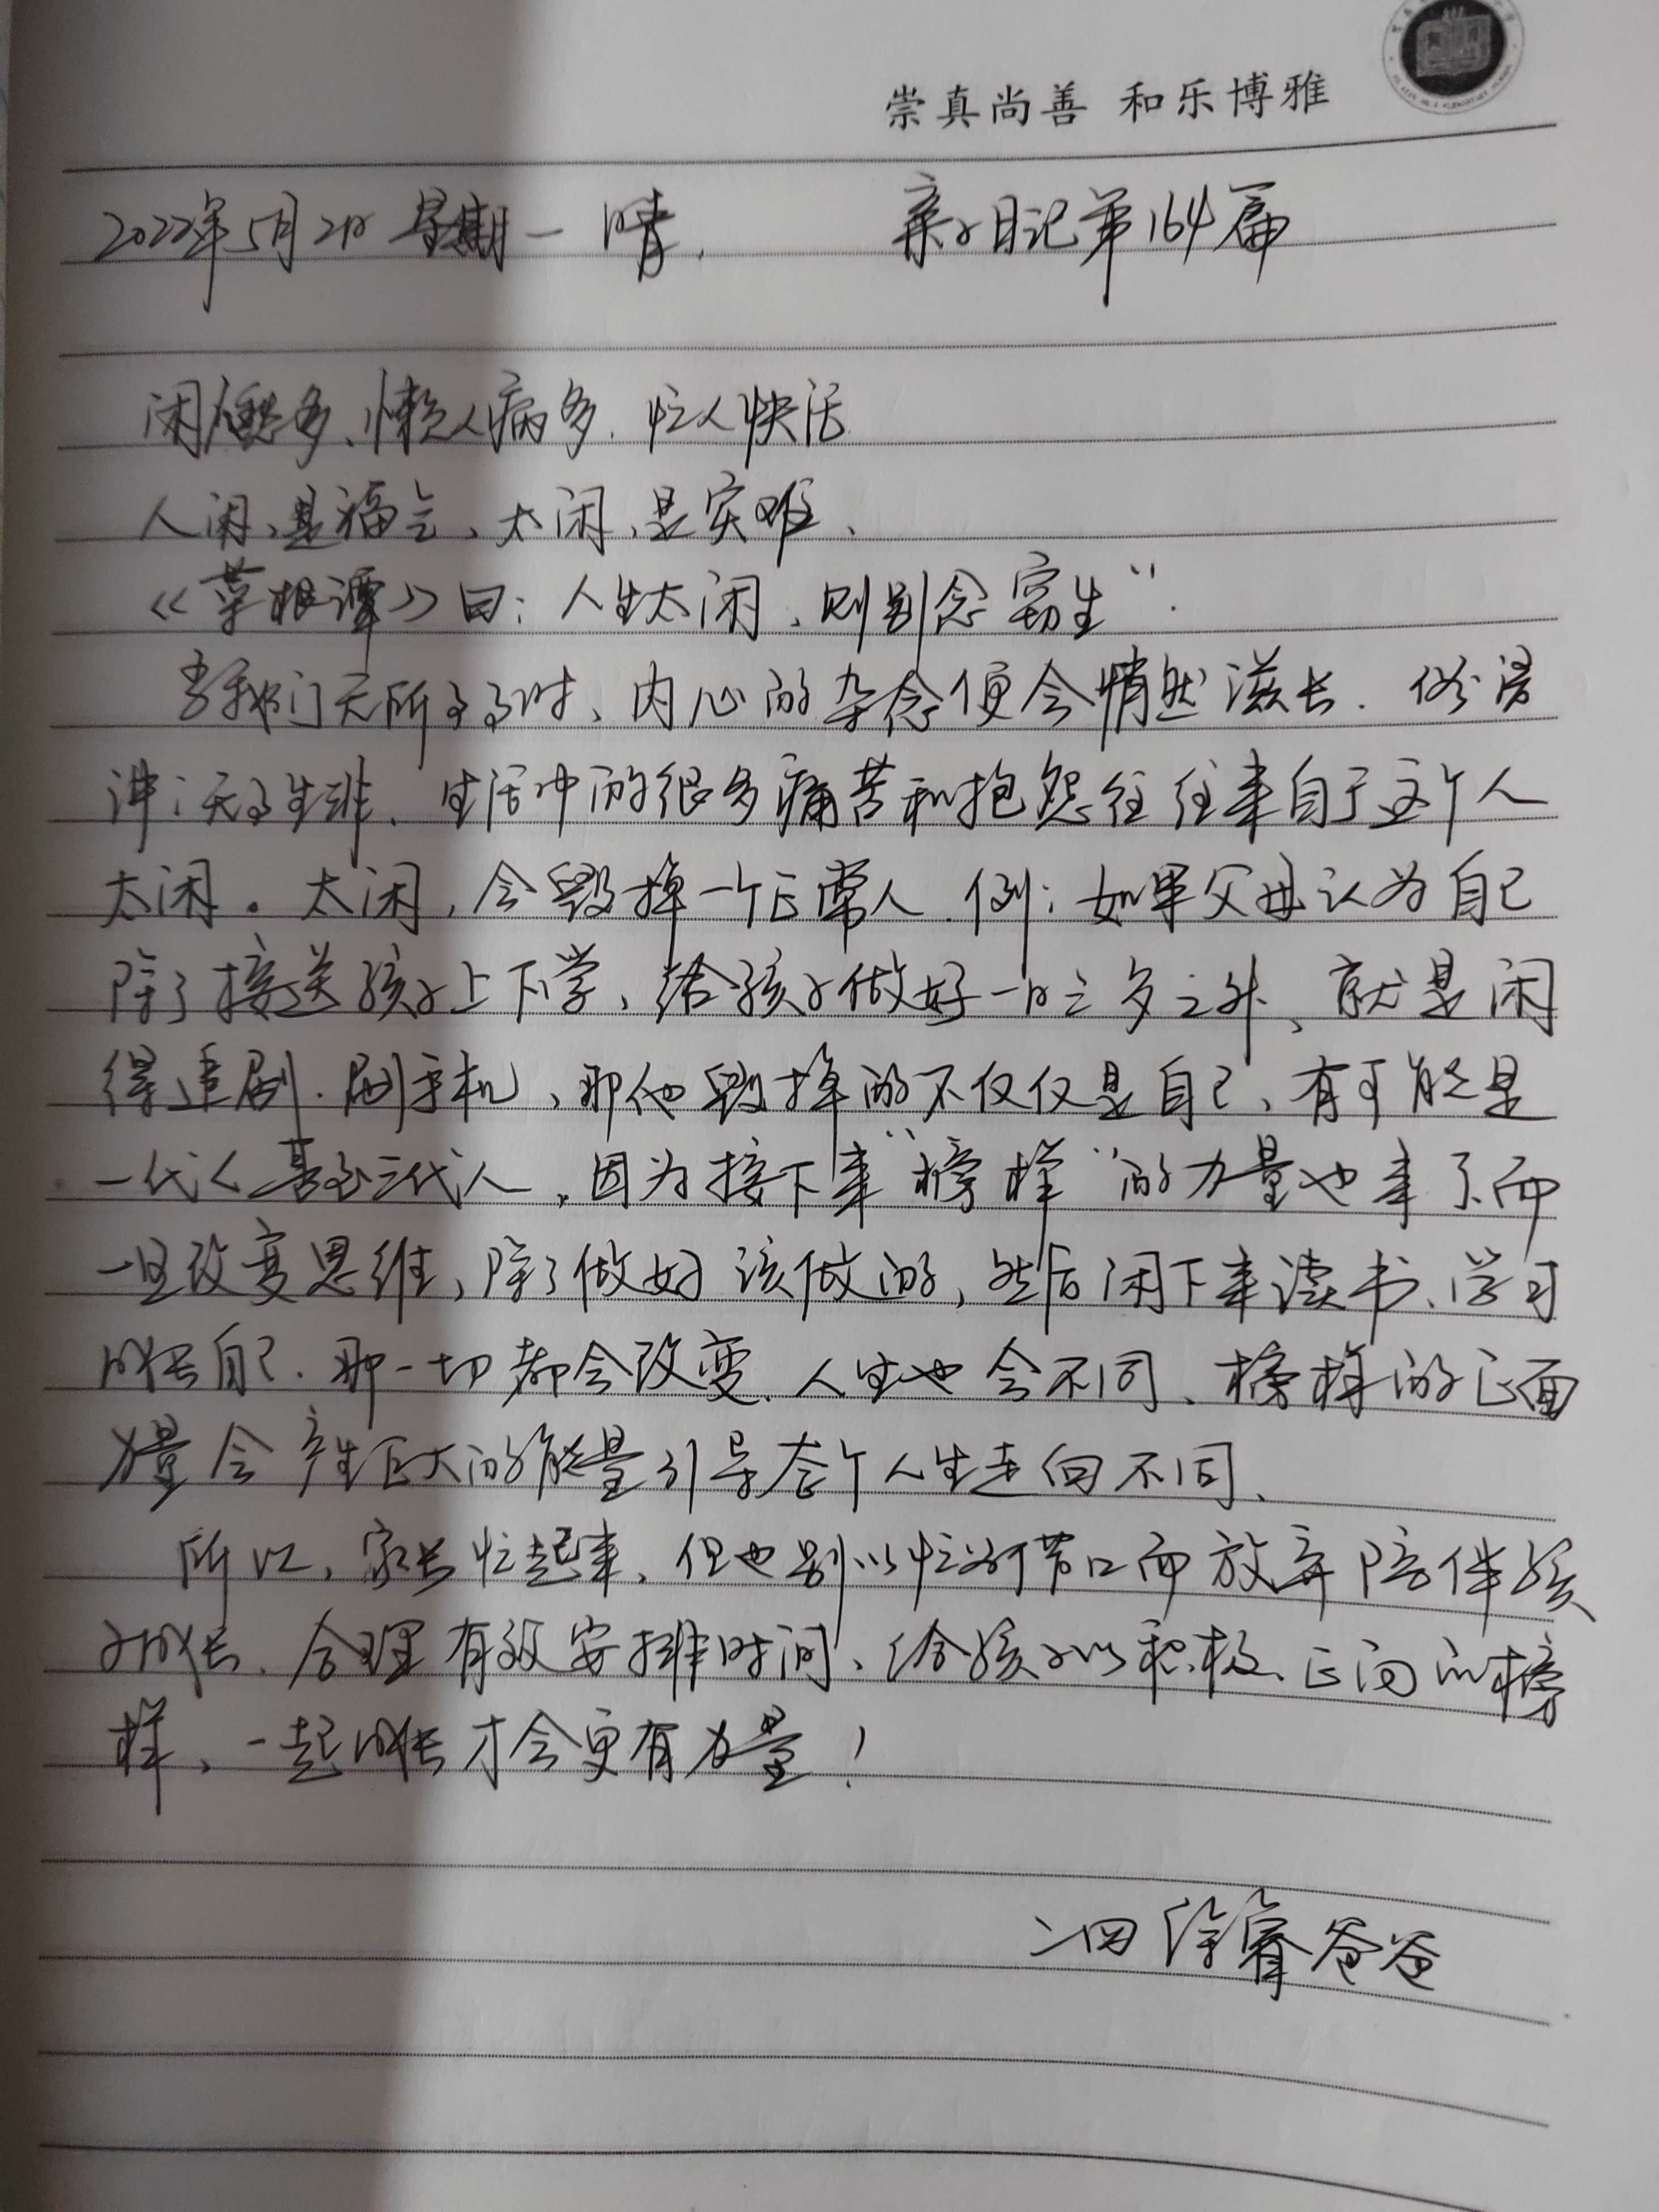 崇真尚善 和乐博雅
2022年5月2日 星期一 晴. 亲子日记第164篇
闲人愁多、懒人病多.忙人快活
人闲、是福气、太闲、是灾难、
《菜根谭》曰：人生太闲、则别念窃生”.
当我们无所事事时、内心的杂念便会悄然滋长.俗语
讲：无事生非、生活中的很多痛苦和抱怨往往来自于这个人
太闲。太闲，会毁掉一个正常人.例：如果父母认为自己
除了接送孩子上下学、给孩子做好一日三多之外、就是闲
得追剧.刷手机、那他毁掉的不仅仅是自己、有可能是
一代人甚至三代人，因为接下来“榜样”的力量也来了、而
一旦改变思维，除了做好该做的，然后闲下来读书、学习
成长自己.那一切都会改变、人生也会不同、榜样的正面
力量会产生巨大的能量引导整个人生走向不同、
所以，家长忙起来、但也别以忙为借口而放弃陪伴孩
子成长、合理有效安排时间、给孩子以积极、正向的榜
样、一起成长才会更有力量！
二四 徐睿爸爸